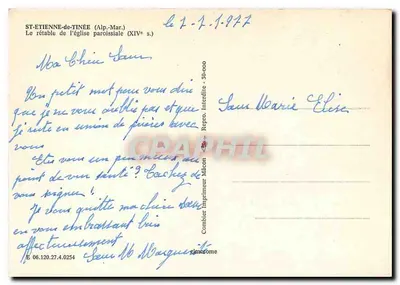 ST-ETIENNE-de-TINÉE (Alp.-Mar.)
Le rétable de l'église paroissiale (XIVe s.)
le 7-7-1977
Ma Chère Sœur
Un petit mot pour vous dire
que je ne vous oublie pas et que
je reste en union de prières avec
vous
Etes vous un peu mieux au
point de vue santé? Tachez de
vous soigner!
Je vous quitte ma chère sœur
en vous embrassant bien
affectueusement
Sœur M Marguerite
Sœur Marie Elise
Combier Imprimeur Mâcon
Repro. Interdite - 30-000
CPAPHIL
E 06.120.27.4.0254